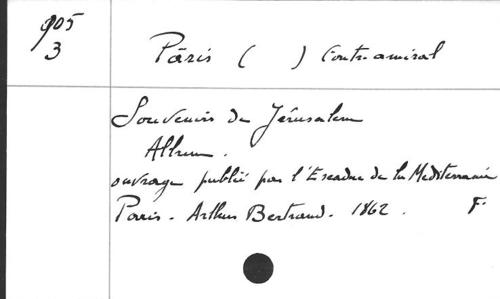 905
3
Pâris ( ) Contre-amiral
Souvenirs de Jérusalem
Album.
ouvrage publié par l'Escadre de la Méditerranée
Paris - Arthus Bertrand. 1862. F.